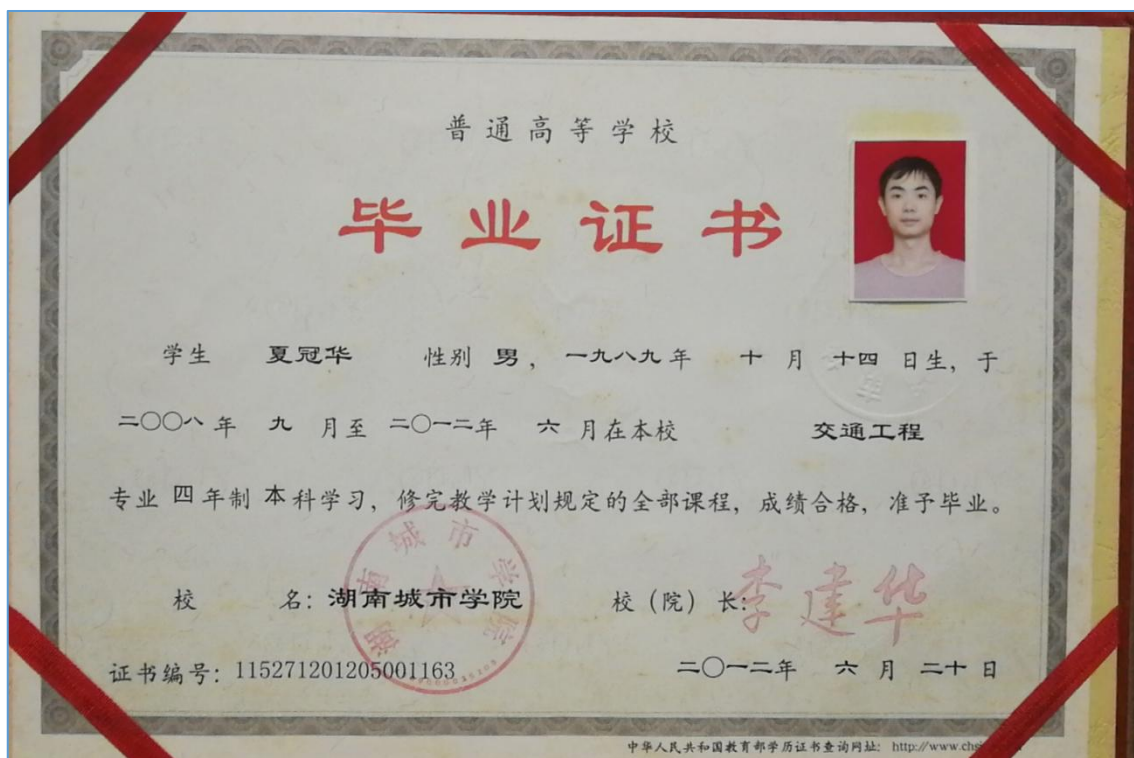 普通高等学校
毕业证书
学生 夏冠华 性别 男，一九八九年 十 月 十四 日生，于
二〇〇八年 九 月至 二〇一二年 六 月在本校 交通工程
专业 四 年制 本 科学习，修完教学计划规定的全部课程，成绩合格，准予毕业。
湖南城市学院
校 名：湖南城市学院 校（院）长：李建华
证书编号：115271201205001163 二〇一二年 六 月 二十 日
中华人民共和国教育部学历证书查询网址： http://www.chs